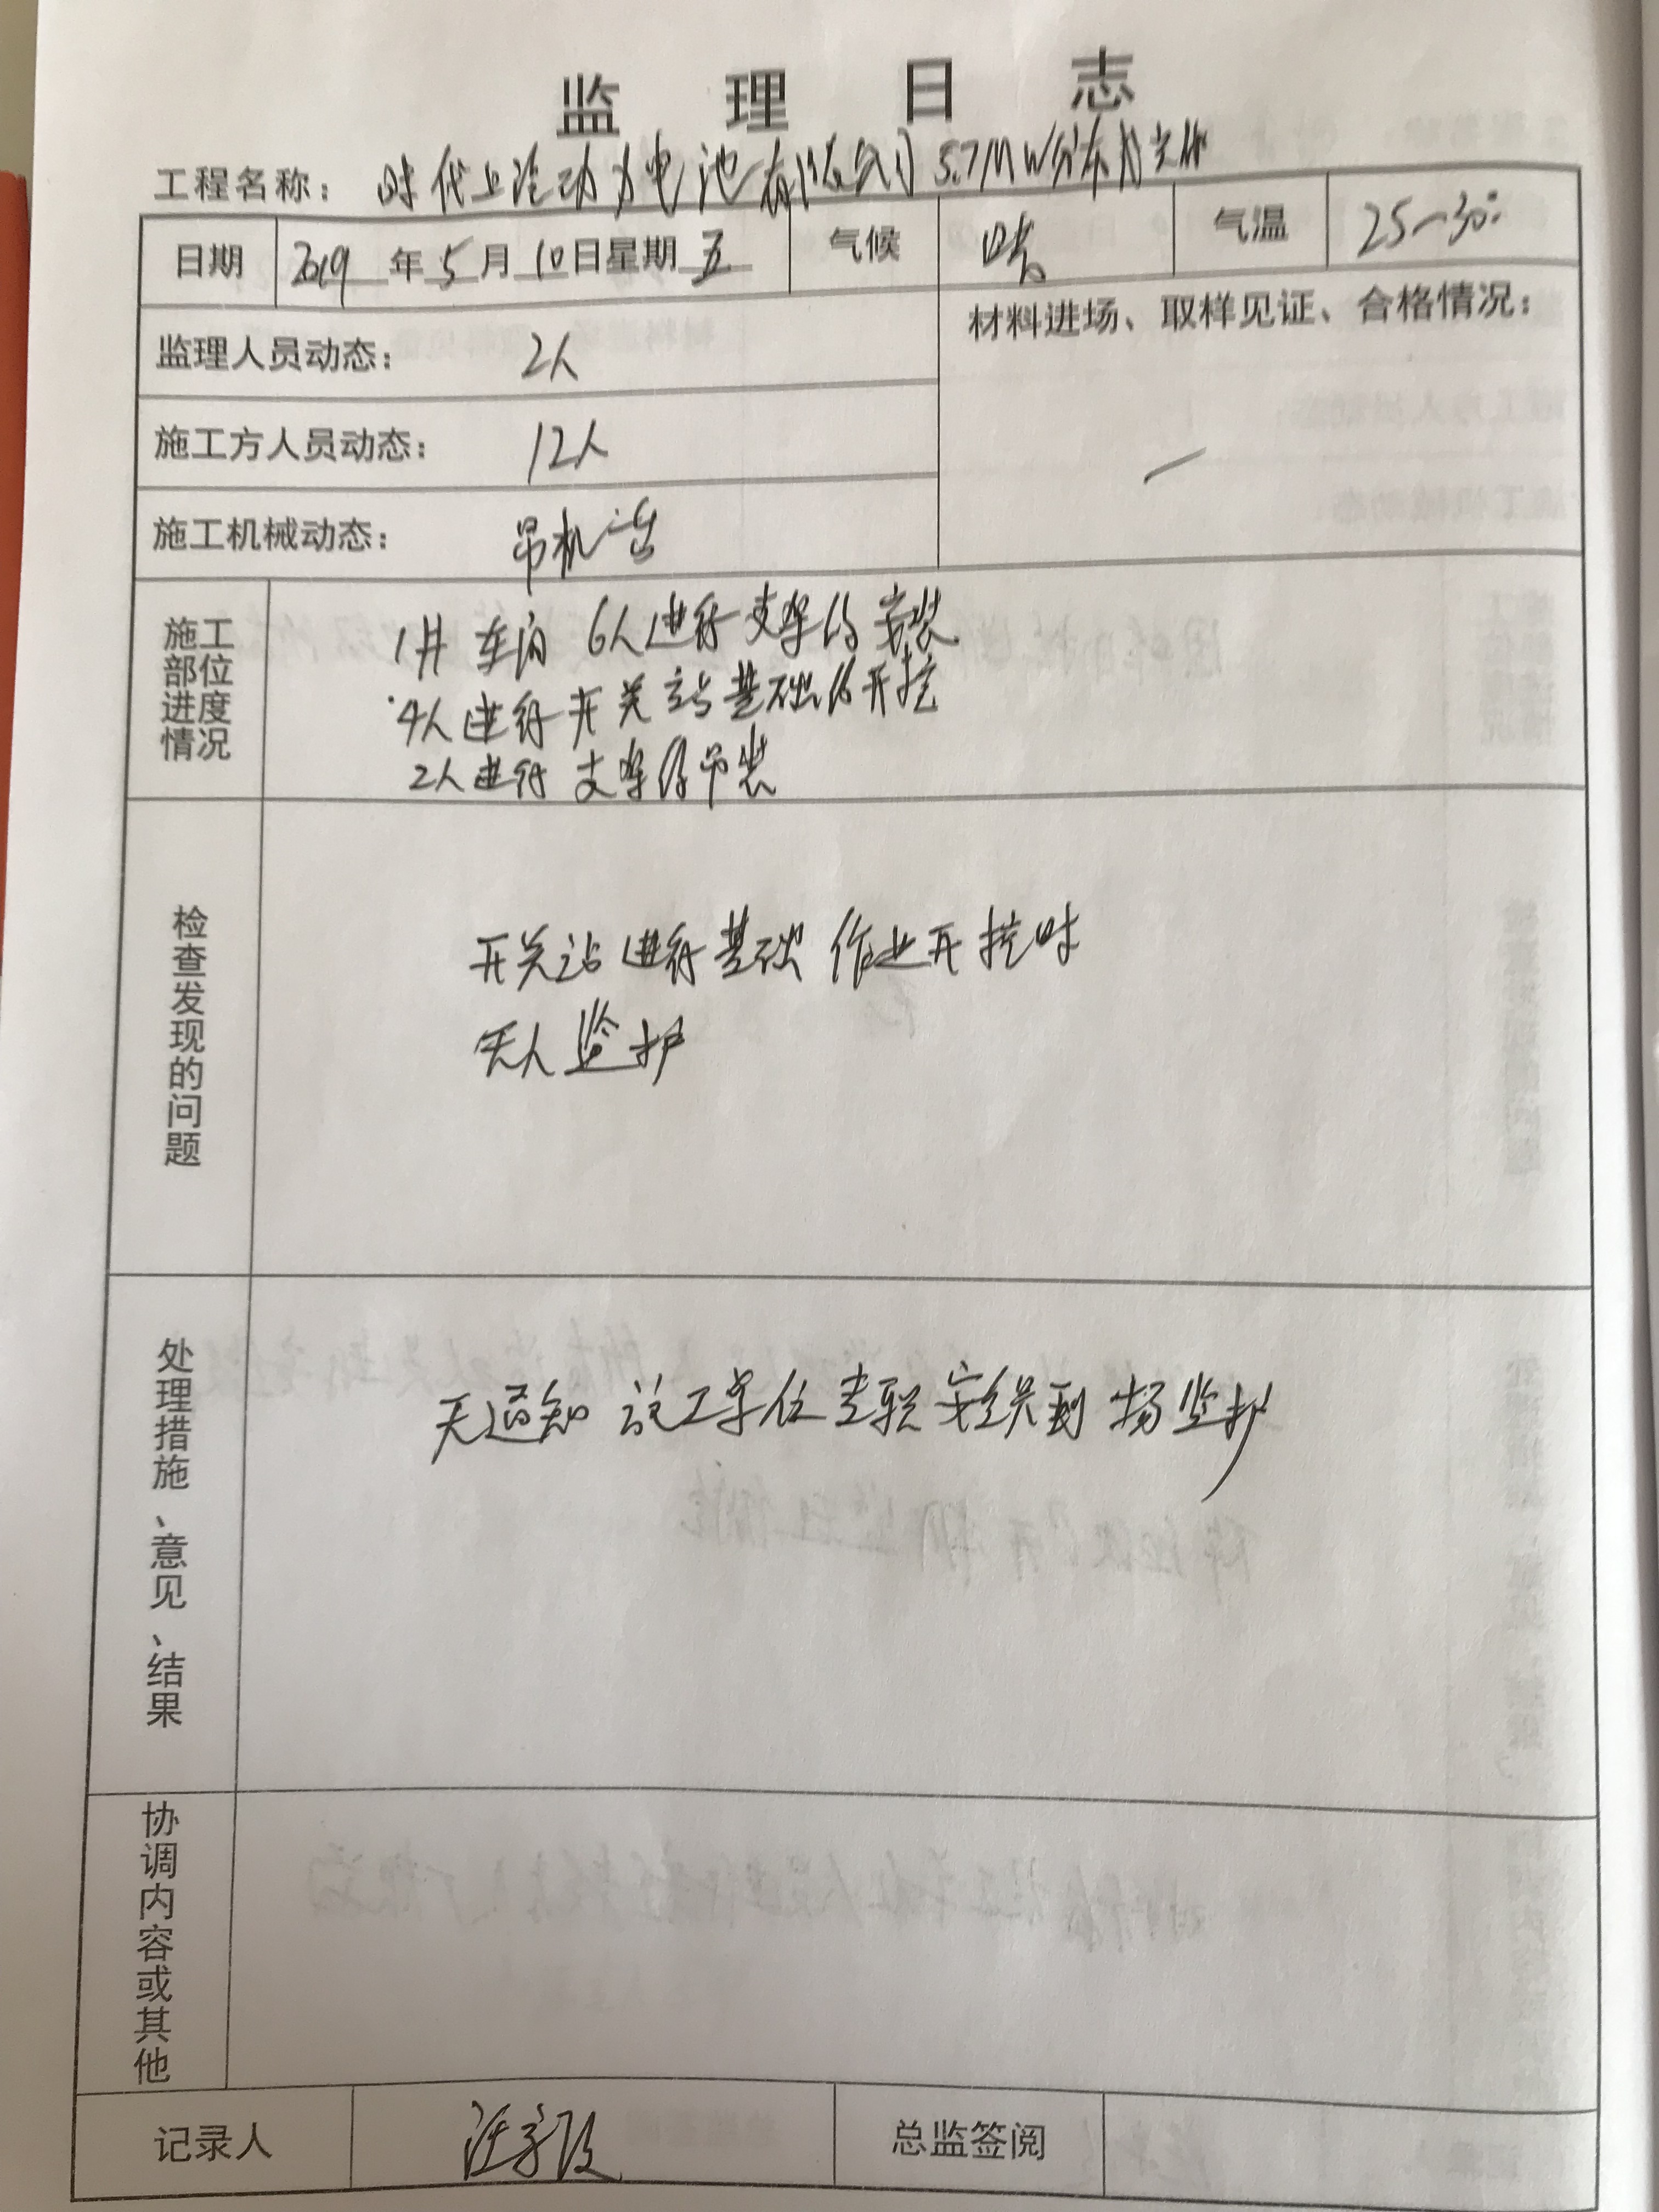 监理日志
工程名称：时代上汽动力电池有限公司5.7MW分布式光伏
日期 2019年5月10日星期五 气候 晴 气温 25—30°
监理人员动态： 2人 材料进场、取样见证、合格情况：
施工方人员动态： 12人 —
施工机械动态： 吊机一台
施工部位进度情况
1# 车间 6人进行支架的安装
4人进行开关站基础的开挖
2人进行支架的吊装
检查发现的问题
开关站进行基础作业开挖时
无人监护
处理措施、意见、结果
通知施工单位专职安全员到场监护
协调内容或其他
记录人 总监签阅